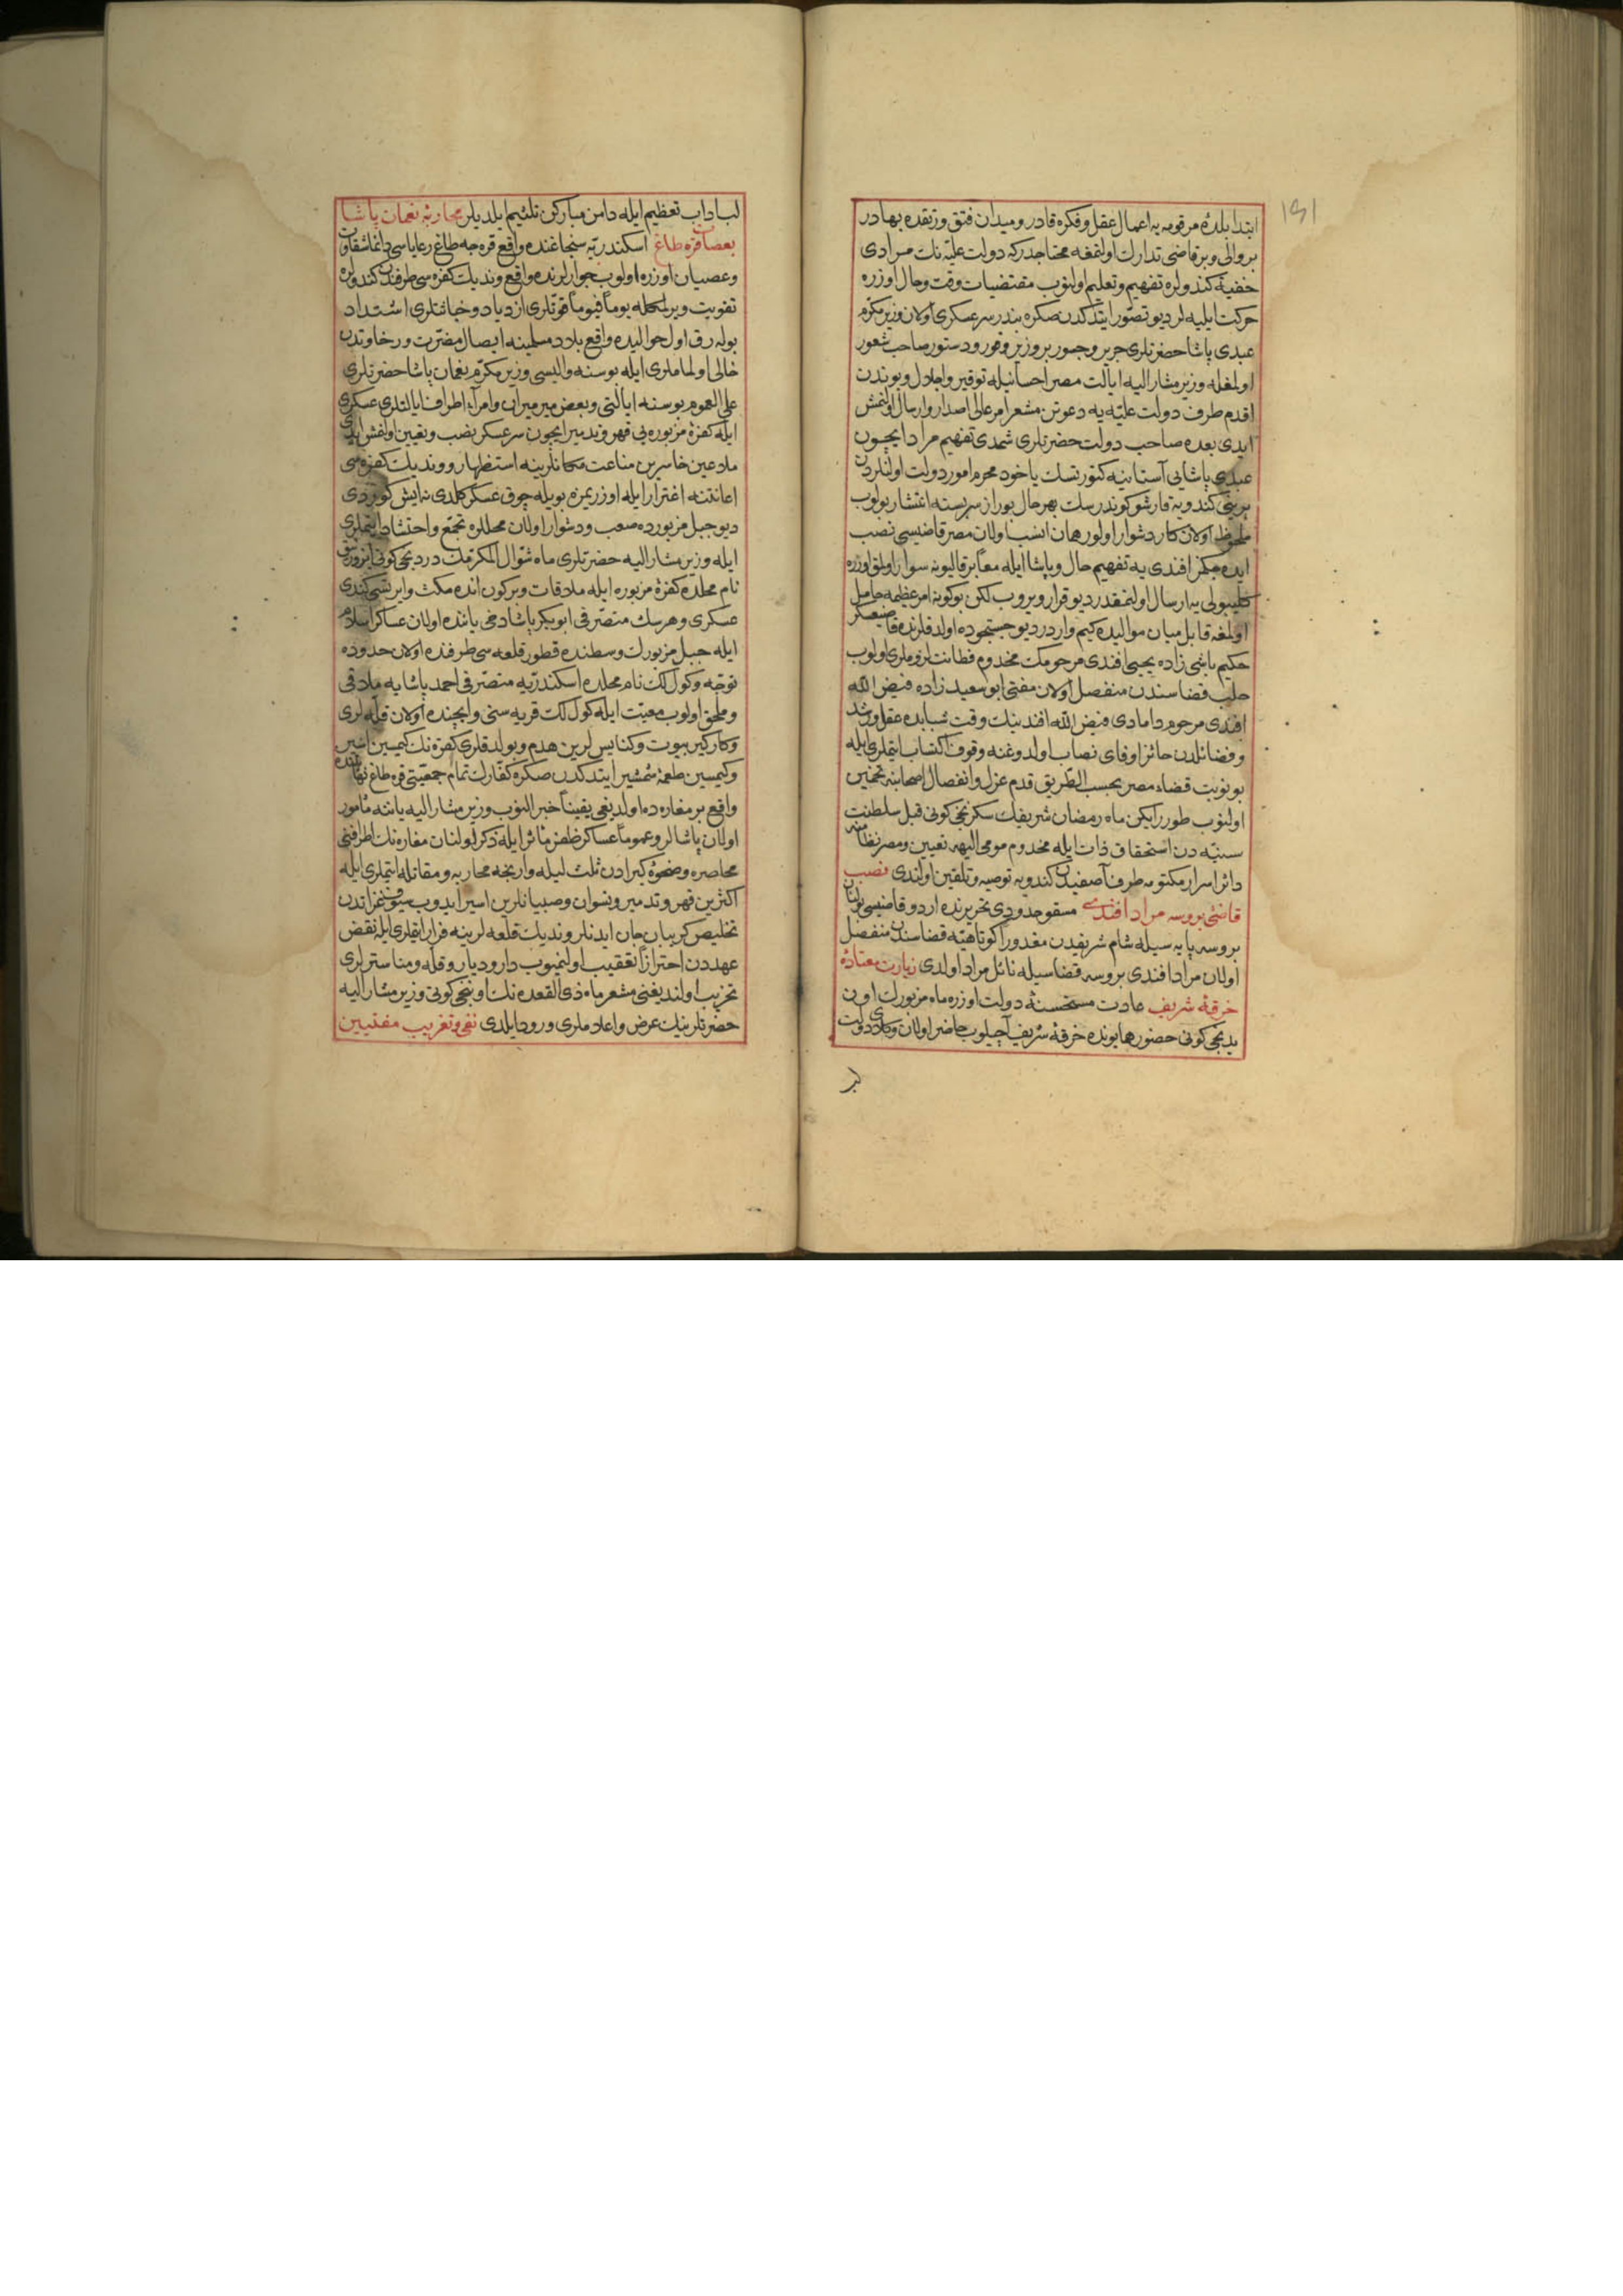 ١٥١
ابتدا بلدهٔ مرقومه یه اعمال عقل و فکره قادر و میدان فتق و رتقده بهادر
بر والی و بر قاضی تدارك اولنمغه محتاجدر که دولت علیّه نك مرادی
خفیةً کندولره تفهیم و تعلیم اولنوب مقتضیات وقت و حال اوزره
حرکت ایلیه لر دیو تصوّر ایتدکدن صکره بندر سرعسکری اولان وزیر مکرّم
عبدی پاشا حضرتلری جریر و جسور بر وزیر وقور و دستور صاحب شعور
اولمغله وزیر مشار الیه ایالت مصر احسانیله توقیر و اجلال و بوندن
اقدم طرف دولت علیّه یه دعوتن مشعر امر عالی اصدار و ارسال اولنمش
ایدی بعده صاحب دولت حضرتلری شمدی تفهیم مراد ایچون
عبدی پاشایی آستانیه کتورتسك یا خود محرم امور دولت اولنلردن
برینی کندویه قارشو کوندرسك بهر حال بو راز سربسته انتشار بولوب
ملحوظ اولان کار دشوار اولور همان انسب اولان مصر قاضیسی نصب
ایده جکمز افندی یه تفهیم حال و پاشا ایله معاً بر قالیونه سوار اولمق اوزره
کلیبولی یه ارسال اولنمقدر دیو قرار ویروب لکن بو کونه امر عظیمه حامل
اولمغه قابل میان موالیده کیم واردر دیو جستجوده اولدقلرنده قاضیعسکر
حکیم باشی زاده یحیی افندی مرحومك مخدوم فطانت لزوملری اولوب
حلب قضاسندن منفصل اولان مفتی ابو سعید زاده فیض الله
افندی مرحوم دامادی فیض الله افندینك وقت شبابده عقل و رشد
و فضائلدن حائز اوفای نصاب اولدوغنه وقوف اکتساب ایتملری ایله
بو نوبت قضاء مصر بحسب الطّریق قدم عزل و انفصال اصحابنه تخمین
اولنوب طورر ایکن ماه رمضان شریفك سکزنجی کونی قبل سلطنت
سنیّه دن استحقاق ذات ایله مخدوم مومی الیهه تعیین و مصر نظامنه
دائر اسرار مکتومه طرف آصفیدن کندویه توصیه و تلقین اولندی نصب
قاضئ بروسه مراد افندی مسقو حدودی تحریرنده اردو قاضیسی بولنان
بروسه پایه سیله شام شریفدن مغدوراً کوتاهیّه قضاسندن منفصل
اولان مراد افندی بروسه قضاسیله نائل مراد اولدی زیارت معتادهٔ
خرقهٔ شریف عادت مستحسنهٔ دولت اوزره ماه مزبورك اون
یدنجی کونی حضور همایونده خرقهٔ شریف آچیلوب حاضر اولان وکلای دولت
لب اداب تعظیم ایله دامن مبارکن تلثیم ایلدیلر محاربهٔ نعمان پاشا
بعصاة قره طاغ اسکندریّه سنجاغنده واقع قره جه طاغ رعایاسی دائما شقاوت
و عصیان اوزره اولوب جوارلرنده واقع وندیك کفره سی طرفندن کندولره
تقویت ویرلمکله یوماً فیوماً قوّتلری ازدیاد و خباثتلری اشتداد
بوله رق اول حوالیده واقع بلاد مسلمینه ایصال مضرّت و رخاوتدن
خالی اولماملری ایله بوسنه والیسی وزیر مکرّم نعمان پاشا حضرتلری
علی العموم بوسنه ایالتی و بعض میرمیران و امرآء اطراف ایالتلری عسکری
ایله کفرهٔ مزبوره یی قهر و تدمیر ایچون سرعسکر نصب و تعیین اولنمش ایدی
ملاعین خاسرین مناعت مکانلرینه استظهار و وندیك کفره سی
اعانتنه اغترار ایله اوزریمزه بویله چوق عسکر کلدی نه ایش کوردی
دیو جبل مزبورده صعب و دشوار اولان محللره تجمّع و احتشاد ایتملری
ایله وزیر مشار الیه حضرتلری ماه شوّال المکرّمك دردنجی کونی
نام محلده کفرهٔ مزبوره ایله ملاقات و بر کون انده مکث و ایرتسی کندی
عسکری و هرسك متصرّفی ابو بکر پاشا دخی یاننده اولان عساکر اسلام
ایله جبل مزبورك وسطنده قطور قلعه سی طرفنده اولان حدوده
توجّه و کول لك نام محلده اسکندریّه متصرّفی احمد پاشایه ملاقی
و ملحق اولوب معیّت ایله کول لك قریه سنی و ایچنده اولان قلّه لری
و کارکیر بیوت و کنایس لرین هدم و بولدقلری کفره نك کیمیسین اسیر
و کیمیسین طعمهٔ شمشیر ایتدکدن صکره کفّارك تمام جمعیّتی قره طاغ
واقع بر مغاره ده اولدیغی یقیناً خبر النوب وزیر مشار الیه یاننه مأمور
اولان پاشالر و عموماً عساکر ظفر مآثر ایله ذکر اولنان مغاره نك اطرافنی
محاصره و ضحوهٔ کبرادن ثلث لیله وارنجه محاربه و مقاتله ایتملری ایله
اکثرین قهر و تدمیر و نسوان و صبیانلرین اسیر ایدوب سیوف غزاتدن
تخلیص کریبان جان ایدنلر وندیك قلعه لرینه فرار ایتملری ایله نقض
عهددن احترازاً تعقیب اولنمیوب دار و دیار و قله و مناسترلری
تخریب اولندیغنی مشعر ماه ذی القعده نك اوننجی کونی وزیر مشار الیه
حضرتلرینك عرض و اعلاملری ورود ایلدی نفی و تغریب مفتیین